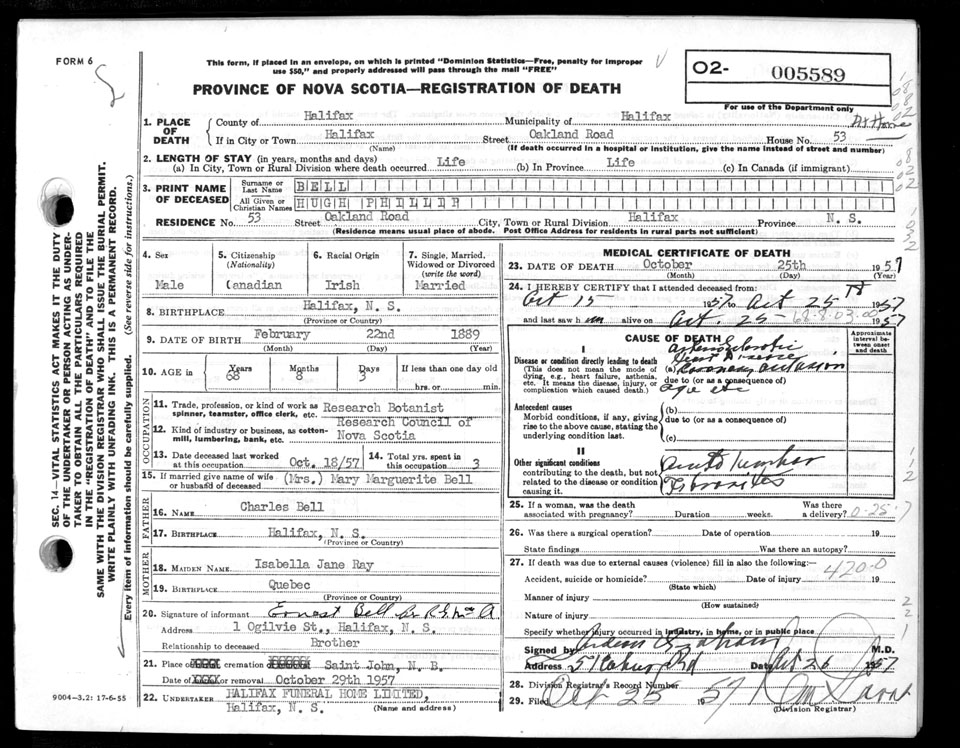 FORM 6
This form, if placed in an envelope, on which is printed "Dominion Statistics—Free, penalty for improper
use $50," and properly addressed will pass through the mail "FREE"
O2- 005589
For use of the Department only
PROVINCE OF NOVA SCOTIA—REGISTRATION OF DEATH
1. PLACE OF DEATH
County of Halifax Municipality of Halifax
If in City or Town Halifax Street Oakland Road House No. 53 At Home
(Name) (If death occurred in a hospital or institution, give the name instead of street and number)
2. LENGTH OF STAY (in years, months and days)
(a) In City, Town or Rural Division where death occurred Life (b) In Province Life (c) In Canada (if immigrant)
3. PRINT NAME OF DECEASED
Surname or Last Name BELL
All Given or Christian Names HUGH PHILLIP
RESIDENCE No. 53 Street Oakland Road City, Town or Rural Division Halifax Province N. S.
(Residence means usual place of abode. Post Office Address for residents in rural parts not sufficient)
4. Sex Male
5. Citizenship (Nationality) Canadian
6. Racial Origin Irish
7. Single, Married, Widowed or Divorced (write the word) Married
8. BIRTHPLACE Halifax, N. S.
(Province or Country)
9. DATE OF BIRTH February 22nd 1889
(Month) (Day) (Year)
10. AGE in Years 68 Months 8 Days 3 If less than one day old
hrs. or min.
OCCUPATION
11. Trade, profession, or kind of work as spinner, teamster, office clerk, etc. Research Botanist
12. Kind of industry or business, as cotton-mill, lumbering, bank, etc. Research Council of Nova Scotia
13. Date deceased last worked at this occupation Oct. 18/57
14. Total yrs. spent in this occupation 3
15. If married give name of wife or husband of deceased (Mrs.) Mary Marguerite Bell
FATHER
16. NAME Charles Bell
17. BIRTHPLACE Halifax, N. S.
(Province or Country)
MOTHER
18. MAIDEN NAME Isabella Jane Ray
19. BIRTHPLACE Quebec
(Province or Country)
20. Signature of informant Ernest Bell
Address 1 Ogilvie St., Halifax, N. S.
Relationship to deceased Brother
21. Place of cremation Saint John, N. B.
Date of or removal October 29th 1957
22. UNDERTAKER HALIFAX FUNERAL HOME LIMITED,
Halifax, N. S. (Name and address)
9004-3.2: 17-6-55
MEDICAL CERTIFICATE OF DEATH
23. DATE OF DEATH October 25th 1957
(Month) (Day) (Year)
24. I HEREBY CERTIFY that I attended deceased from:
Oct 15 1957 to Oct 25 1957
and last saw h im alive on Oct. 25 1957
CAUSE OF DEATH
Approximate interval between onset and death
I
Disease or condition directly leading to death
(This does not mean the mode of dying, e.g., heart failure, asthenia, etc. It means the disease, injury, or complication which caused death.)
Arteriosclerotic
Heart Disease
(a) Coronary occlusion
due to (or as a consequence of)
age etc
Antecedent causes
Morbid conditions, if any, giving rise to the above cause, stating the underlying condition last.
(b)
due to (or as a consequence of)
(c)
II
Other significant conditions
contributing to the death, but not related to the disease or condition causing it.
25. If a woman, was the death associated with pregnancy? Duration weeks. Was there a delivery?
26. Was there a surgical operation? Date of operation 19
State findings Was there an autopsy?
27. If death was due to external causes (violence) fill in also the following:—
420-0
Accident, suicide or homicide? Date of injury 19
(State which)
Manner of injury
(How sustained)
Nature of injury
Specify whether injury occurred in industry, in home, or in public place
Signed by M.D.
Address Date Oct 26 1957
28. Division Registrar's Record Number
29. Filed Oct 25 1957
(Division Registrar)
SEC. 14—VITAL STATISTICS ACT MAKES IT THE DUTY
OF THE UNDERTAKER OR PERSON ACTING AS UNDER-
TAKER TO OBTAIN ALL THE PARTICULARS REQUIRED
IN THE "REGISTRATION OF DEATH" AND TO FILE THE
SAME WITH THE DIVISION REGISTRAR WHO SHALL ISSUE THE BURIAL PERMIT.
WRITE PLAINLY WITH UNFADING INK. THIS IS A PERMANENT RECORD.
Every item of information should be carefully supplied. (See reverse side for instructions.)